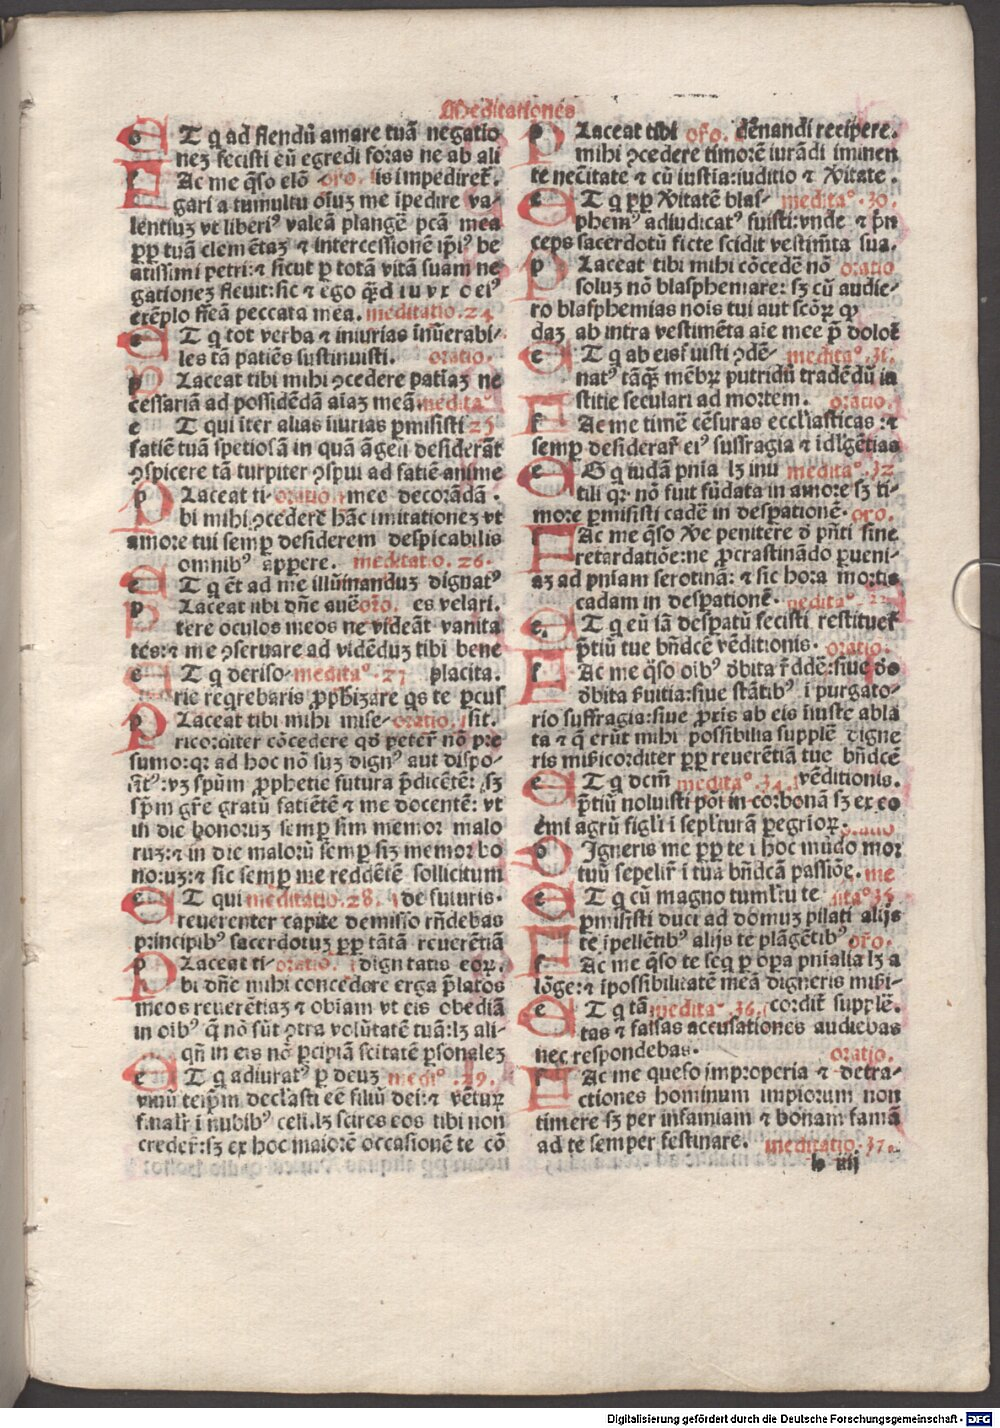 Meditationes
ET q ad flendū amare tuā negatio
neʒ fecisti eū egredi foras ne ab ali
FAc me q̄so elō oro. is impediret̄.
gari a tumultu oīuʒ me īpedire va-
lentiuʒ vt liberiꝰ valeā plangē pc̄a mea
ꝓp tuā clemētiaʒ ⁊ intercessionē ip̄iꝰ be
atissimi petri:⁊ sicut ꝑ totā vitā suam ne
gationeʒ fleuit:sic ⁊ ego eiꝰ
exēplo fleā peccata mea. meditatio. 24
ET q tot verba ⁊ iniurias inūerabi-
les tā patiēs sustinuisti. oratio.
PLaceat tibi mihi ꝯcedere patīaʒ ne
cessariā ad possidēdā aīaʒ meā. meditaᵒ
ET qui īter alias īiurias ꝑmisisti 25
fatiē tuā spetiosā in quā āgeli desiderāt
ꝯspicere tā turpiter ꝯspui ad fatiē anime
PLaceat ti- oratio. mee decorādā.
bi mihi ꝯcedere hāc imitationeʒ vt
amore tui semꝑ desiderem despicabilis
omnibꝰ apꝑere. meditatio. 26.
ET q ēt ad me illūinanduʒ dignatꝰ
PLaceat tibi dn̄e auē oro. es velari.
tere oculos meos ne videāt vanita
tes:⁊ me ꝯseruare ad vidēduʒ tibi bene
ET q deriso- meditaᵒ. 27 placita.
rie reqrebaris ꝓphīzare qs te ꝑcus
PLaceat tibi mihi mise- oratio. sit.
ricorditer cōcedere qd̄ peter̄ nō pre
sumo:qr ad hoc nō suʒ dignꝰ aut dispo-
sitꝰ:vʒ spūm ꝓphetie futura p̄dicētē: sʒ
sp̄m gr̄e gratū fatiētē ⁊ me docentē: vt
in die bonoruʒ semꝑ sim memor malo
ruʒ:⁊ in die malorū semꝑ siʒ memor bo
no:uʒ:⁊ sic semꝑ me reddētē sollicitum
ET qui meditatio. 28. de futuris.
reuerenter capite demisso rn̄debas
principibꝰ sacerdotuʒ ꝓp tātā reuerētiā
PLaceat ti- oratio. dignitatis eoꝝ.
bi dn̄e mihi concedere erga p̄latos
meos reuerētiaʒ ⁊ obīam vt eis obediā
in oībꝰ q̄ nō sūt ꝯtra volūtatē tuā:lʒ ali-
qn̄ in eis nō ꝑcipiā scītatē ꝑsonaleʒ
ET q adiuratꝰ ꝑ deuʒ mediᵒ. 29.
viuū teip̄m declasti eē filiū dei:⁊ vētuꝝ
finalr̄ ī nubibꝰ celi.lʒ scires eos tibi non
creder̄:sʒ ex hoc maiorē occasionē te cō
PLaceat tibi oro. dēnandi recipere.
mihi ꝯcedere timorē iurādi iminen
te necītate ⁊ cū iustīa:iuditio ⁊ v̄itate.
ET q ꝓp v̄itatē blas- meditaᵒ. 30.
phemꝰ adiudicatꝰ fuisti:vnde ⁊ p̄n
ceps sacerdotū ficte scidit vestim̄ta sua.
PLaceat tibi mihi cōcedē nō oratio
soluʒ nō blasphemare: sʒ cū audie-
ro blasphemias nois tui aut scōꝝ ꝙ
daʒ ab intra vestimēta aīe mee p̄ dolore
ET q ab eisdē uisti ꝯdē- meditaᵒ. 31.
natꝰ tāq̄ʒ mēbꝝ putridū tradēdū iu
stitie seculari ad mortem. oratio.
FAc me timē cēsuras eccl̄iasticas:⁊
semꝑ desiderar̄ eiꝰ suffragia ⁊ īdl̄gētias
ES q iudam pn̄ia lʒ inu meditaᵒ. 32
tili qr nō fuit fūdata in amore sʒ ti-
more ꝑmisisti cadē in desꝑationē. oro.
FAc me q̄so v̄e penitere d̄ pn̄ti sine
retardatiōe:ne ꝓcrastinādo ꝑueni-
aʒ ad pn̄iam serotinā: ⁊ sic hora mortis
cadam in desꝑationē. meditaᵒ. 33
ET q eū iā desꝑatū fecisti restituer̄
p̄tiū tue bn̄dcē vēditionis. oratio.
FAc me q̄so oībꝰ d̄bita r̄ddē:siue d̄o
d̄bita f̄uitia:siue stātibꝰ ī purgato-
rio suffragia:siue ꝓris ab eis iniuste abla
ta ⁊ q̄ erūt mihi possibilia supplē digne
ris miīcorditer ꝓp reuerētiā tue bn̄dcē
ET q dcm̄ meditaᵒ. 34. vēditionis.
p̄tiū noluisti pōi in corbonā sʒ ex eo
emi agrū figl̄i ī sepl̄turā ꝑegrioꝝ. oratio
DIgneris me ꝓp te ī hoc mūdo mor
tuū sepelir̄ ī tua bn̄dcā passiōe. me
ET q cū magno tumltu te ditaᵒ 35
ꝑmisisti duci ad domuʒ pilati alijs
te īpellētibꝰ alijs te plāgētibꝰ oro.
FAc me q̄so te seq ꝑ oꝑa pn̄ialia lʒ a
lōge:⁊ īpossibilitatē meā digneris misi-
ET q tā meditaᵒ. 36. cordit̄ supplē.
tas ⁊ falsas accusationes audiebas
nec respondebas. oratio.
FAc me queso improperia ⁊ detra-
ctiones hominum impiorum non
timere sʒ per infamiam ⁊ bonam famā
ad te semper festinare. meditatio. 37.
h iiij
Digitalisierung gefördert durch die Deutsche Forschungsgemeinschaft - DFG